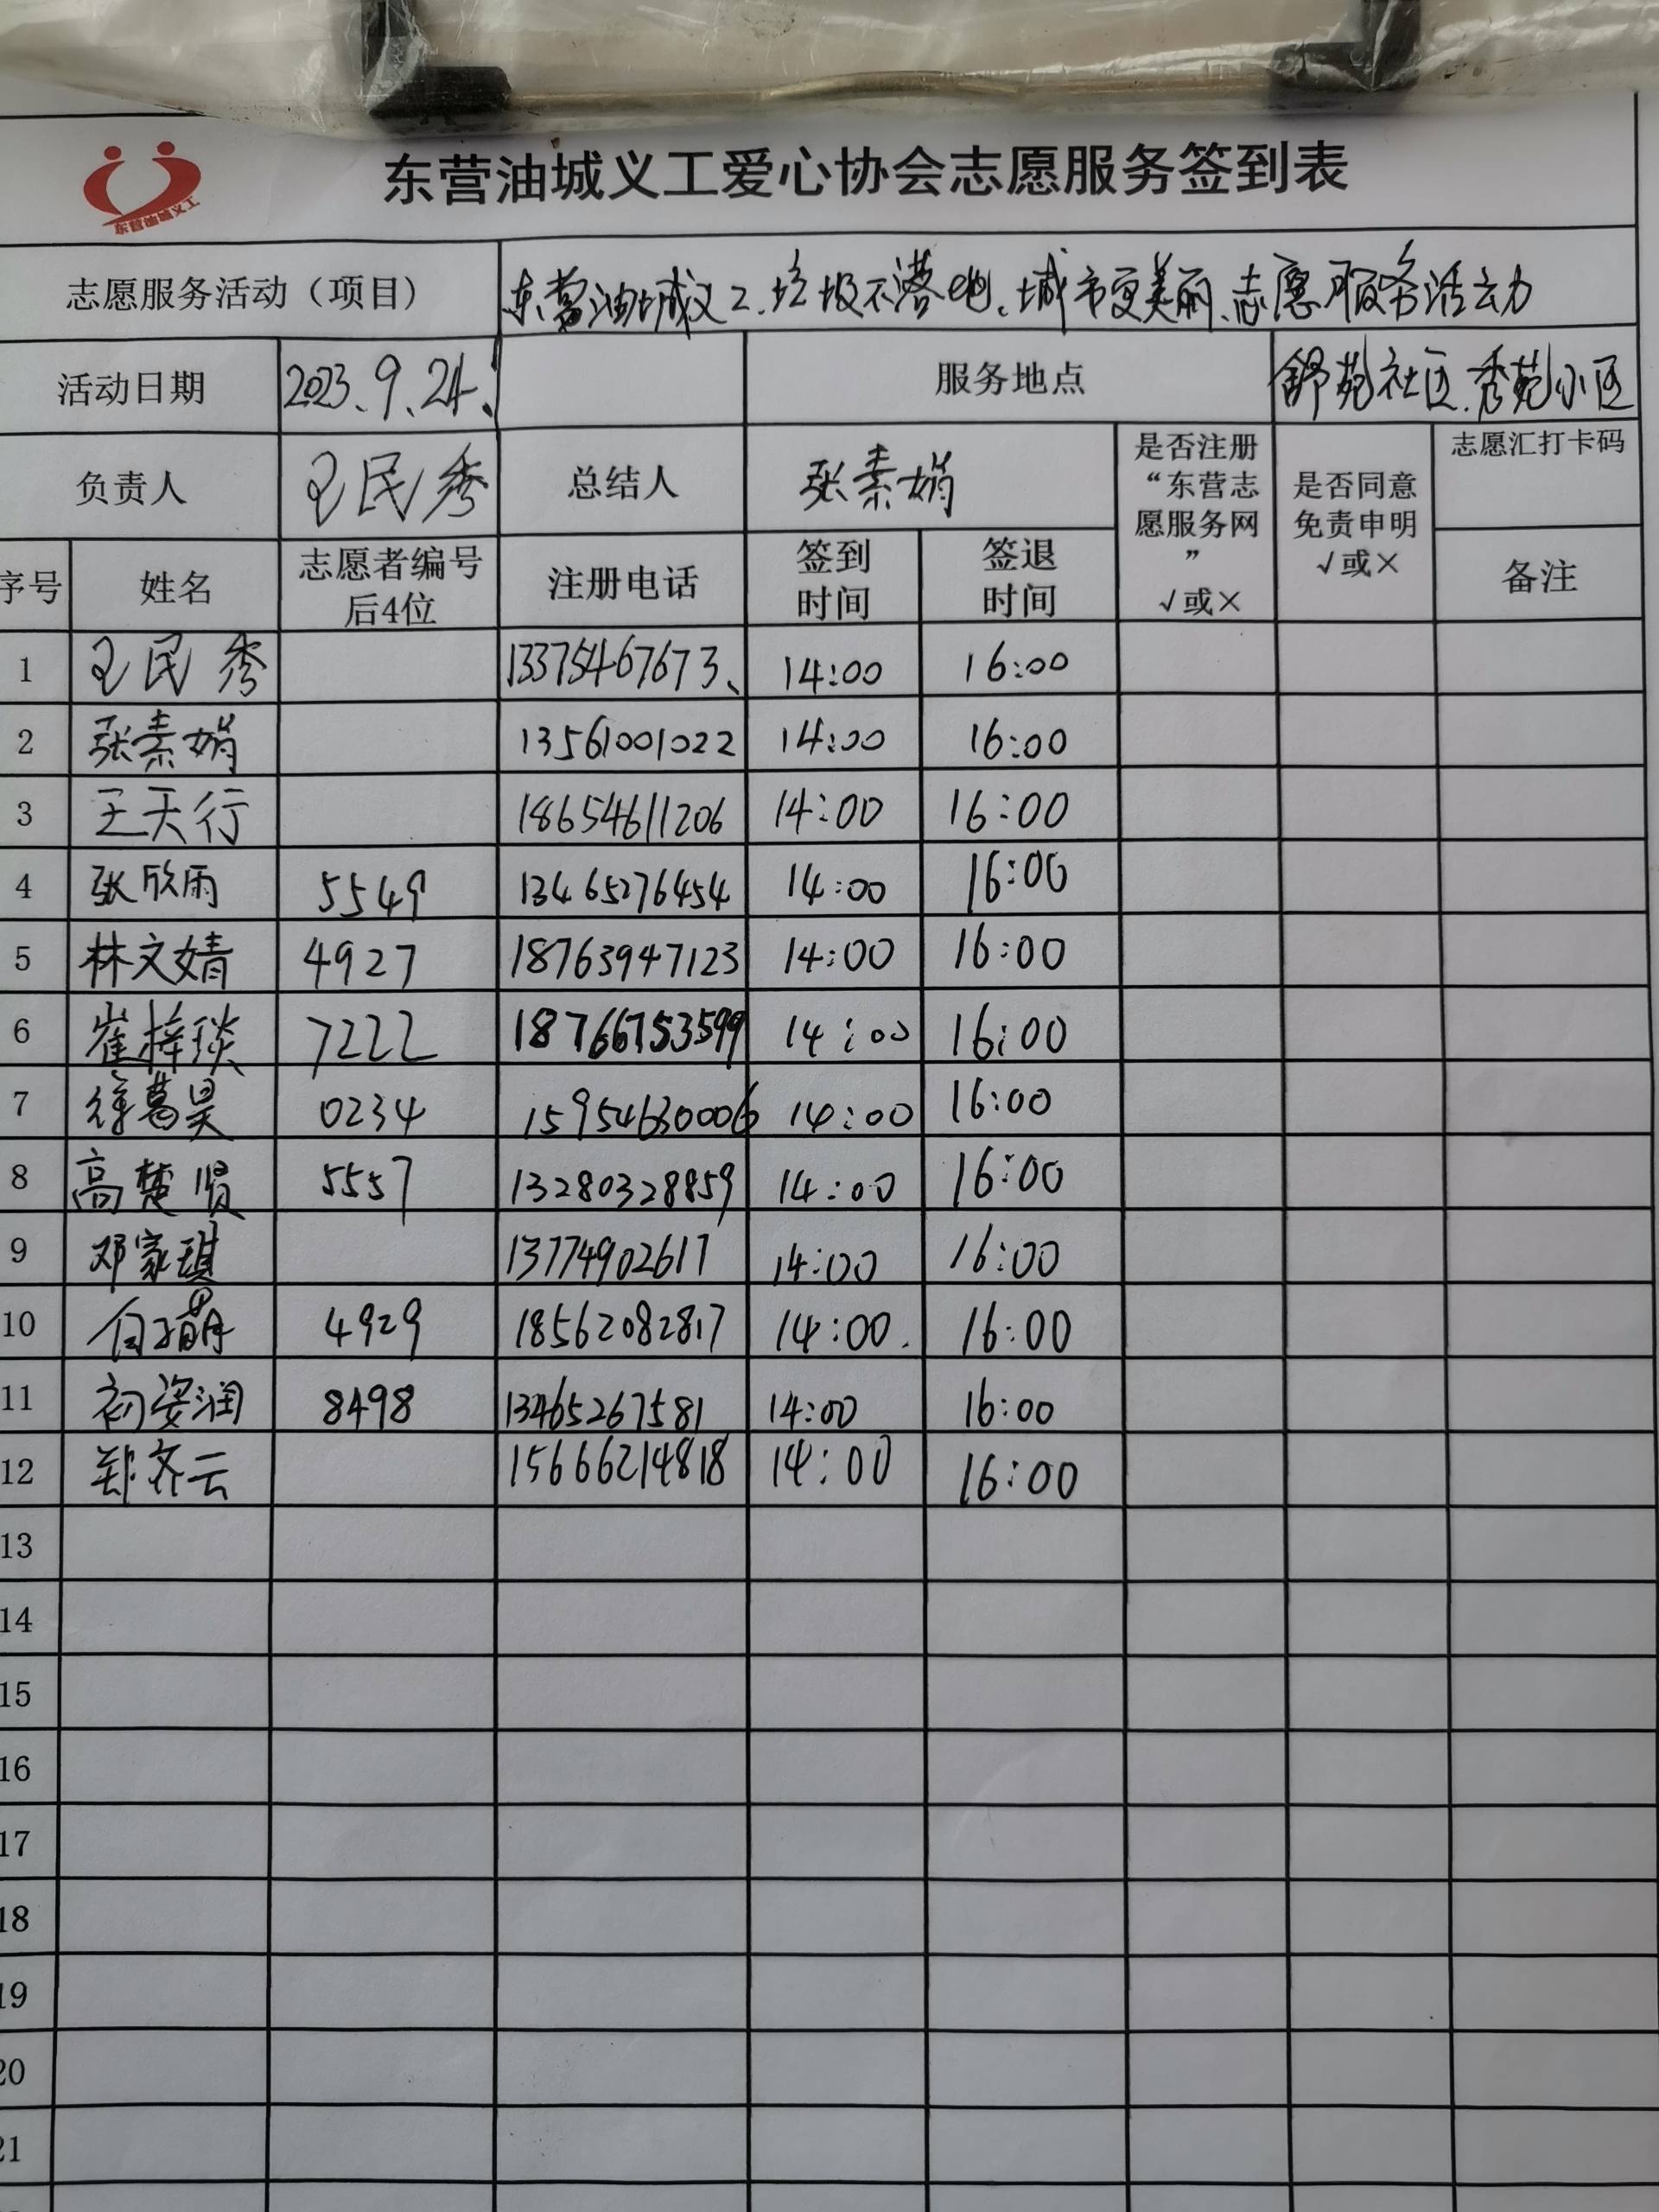 东营油城义工
东营油城义工爱心协会志愿服务签到表
志愿服务活动（项目） 东营油城义工.垃圾不落地、城市更美丽、志愿服务活动
活动日期 2023.9.24. 服务地点 舒苑社区.秀苑小区
负责人 王民秀 总结人 张素娟 是否注册“东营志愿服务网” √或× 是否同意免责申明 √或× 志愿汇打卡码
序号 姓名 志愿者编号后4位 注册电话 签到时间 签退时间 备注
1 王民秀 13375467673、 14:00 16:00
2 张素娟 13561001022 14:00 16:00
3 王天行 18654611206 14:00 16:00
4 张欣雨 5549 13465276454 14:00 16:00
5 林文婧 4927 18763947123 14:00 16:00
6 崔梓琰 7222 18766753599 14:00 16:00
7 徐葛昊 0234 15954630006 14:00 16:00
8 高楚贤 5557 13280328859 14:00 16:00
9 邓家琪 13774902617 14:00 16:00
10 白子萌 4929 18562082817 14:00. 16:00
11 初姿润 8498 13465267581 14:00 16:00
12 郑齐云 15666214818 14:00 16:00
13
14
15
16
17
18
19
20
21